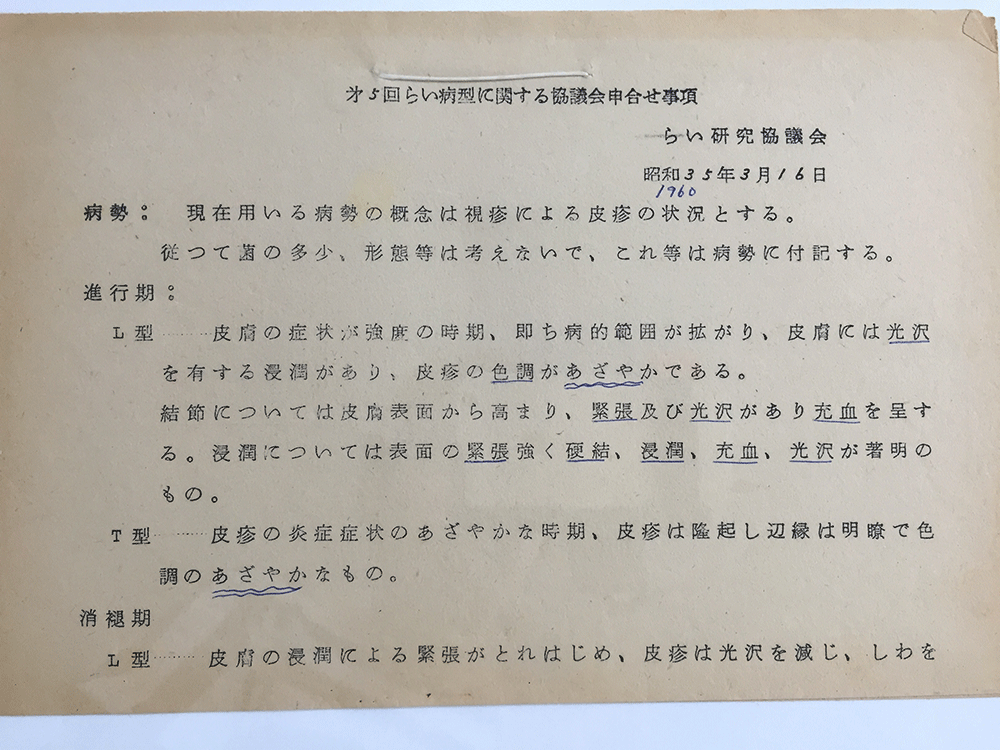 才5回らい病型に関する協議会申合せ事項
らい研究協議会
昭和35年3月16日
1960
病勢： 現在用いる病勢の概念は視疹による皮疹の状況とする。
従つて菌の多少、形態等は考えないで、これ等は病勢に付記する。
進行期：
L型………皮膚の症状が強度の時期、即ち病的範囲が拡がり、皮膚には光沢
を有する浸潤があり、皮疹の色調があざやかである。
結節については皮膚表面から高まり、緊張及び光沢があり充血を呈す
る。浸潤については表面の緊張強く硬結、浸潤、充血、光沢が著明の
もの。
T型………皮疹の炎症症状のあざやかな時期、皮疹は隆起し辺縁は明瞭で色
調のあざやかなもの。
消褪期
L型………皮膚の浸潤による緊張がとれはじめ、皮疹は光沢を減じ、しわを